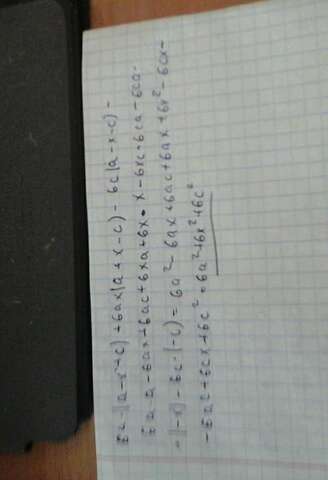 6a·(a-x+c)+6ax(a+x-c)-6c(a-x-c)-
6a·a-6ax+6ac+6xa+6x·x-6xc-6ca-6ca·
·(-x)-6c·(-c)=6a²-6ax+6ac+6ax+6x²-6cx-
-6ac+6cx+6c²=6a²+6x²+6c²